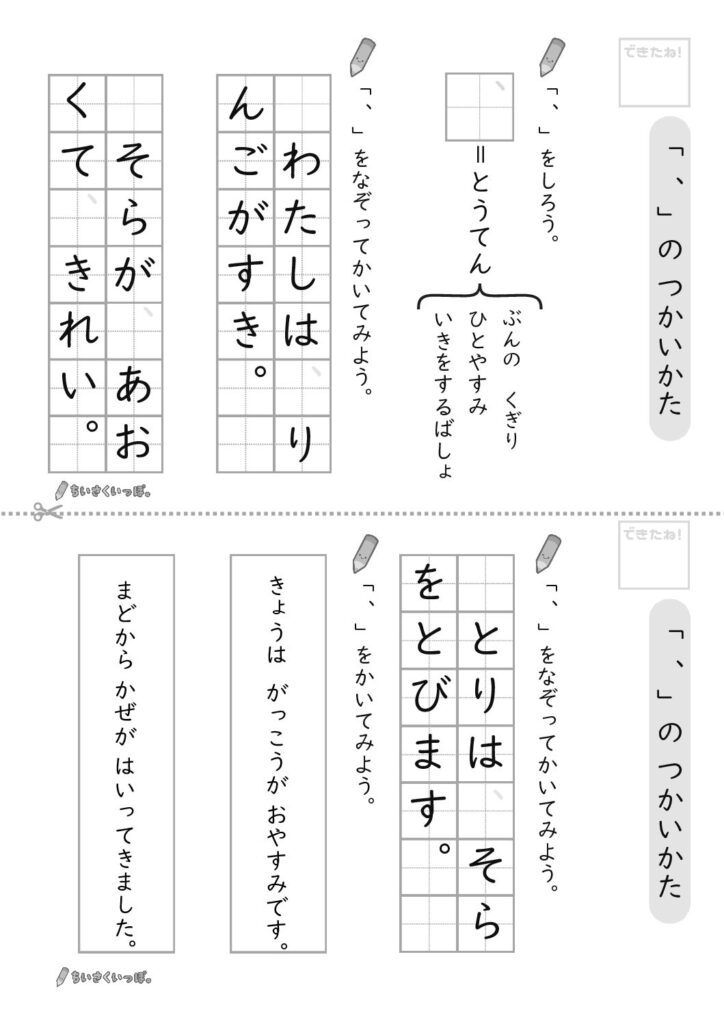 できたね!
「、」の つかいかた
「、」をしろう。
、=とうてん
ぶんの くぎり
ひとやすみ
いきをするばしょ
「、」をなぞってかいてみよう。
わたしは、り
んごがすき。
そらが、あお
くて、きれい。
ちいさくいっぽ。
できたね!
「、」の つかいかた
「、」をなぞってかいてみよう。
とりは、そら
をとびます。
「、」をかいてみよう。
きょうは がっこうが おやすみです。
まどから かぜが はいってきました。
ちいさくいっぽ。